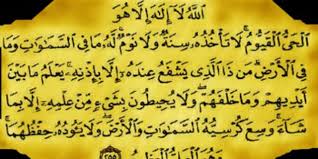 اللَّهُ لَا إِلَٰهَ إِلَّا هُوَ
الْحَيُّ الْقَيُّومُ لَا تَأْخُذُهُ سِنَةٌ وَلَا نَوْمٌ لَهُ مَا فِي السَّمَاوَاتِ وَمَا
فِي الْأَرْضِ مَنْ ذَا الَّذِي يَشْفَعُ عِنْدَهُ إِلَّا بِإِذْنِهِ يَعْلَمُ مَا بَيْنَ
أَيْدِيهِمْ وَمَا خَلْفَهُمْ وَلَا يُحِيطُونَ بِشَيْءٍ مِنْ عِلْمِهِ إِلَّا بِمَا
شَاءَ وَسِعَ كُرْسِيُّهُ السَّمَاوَاتِ وَالْأَرْضَ وَلَا يَئُودُهُ حِفْظُهُمَا
وَهُوَ الْعَلِيُّ الْعَظِيمُ ٢٥٥